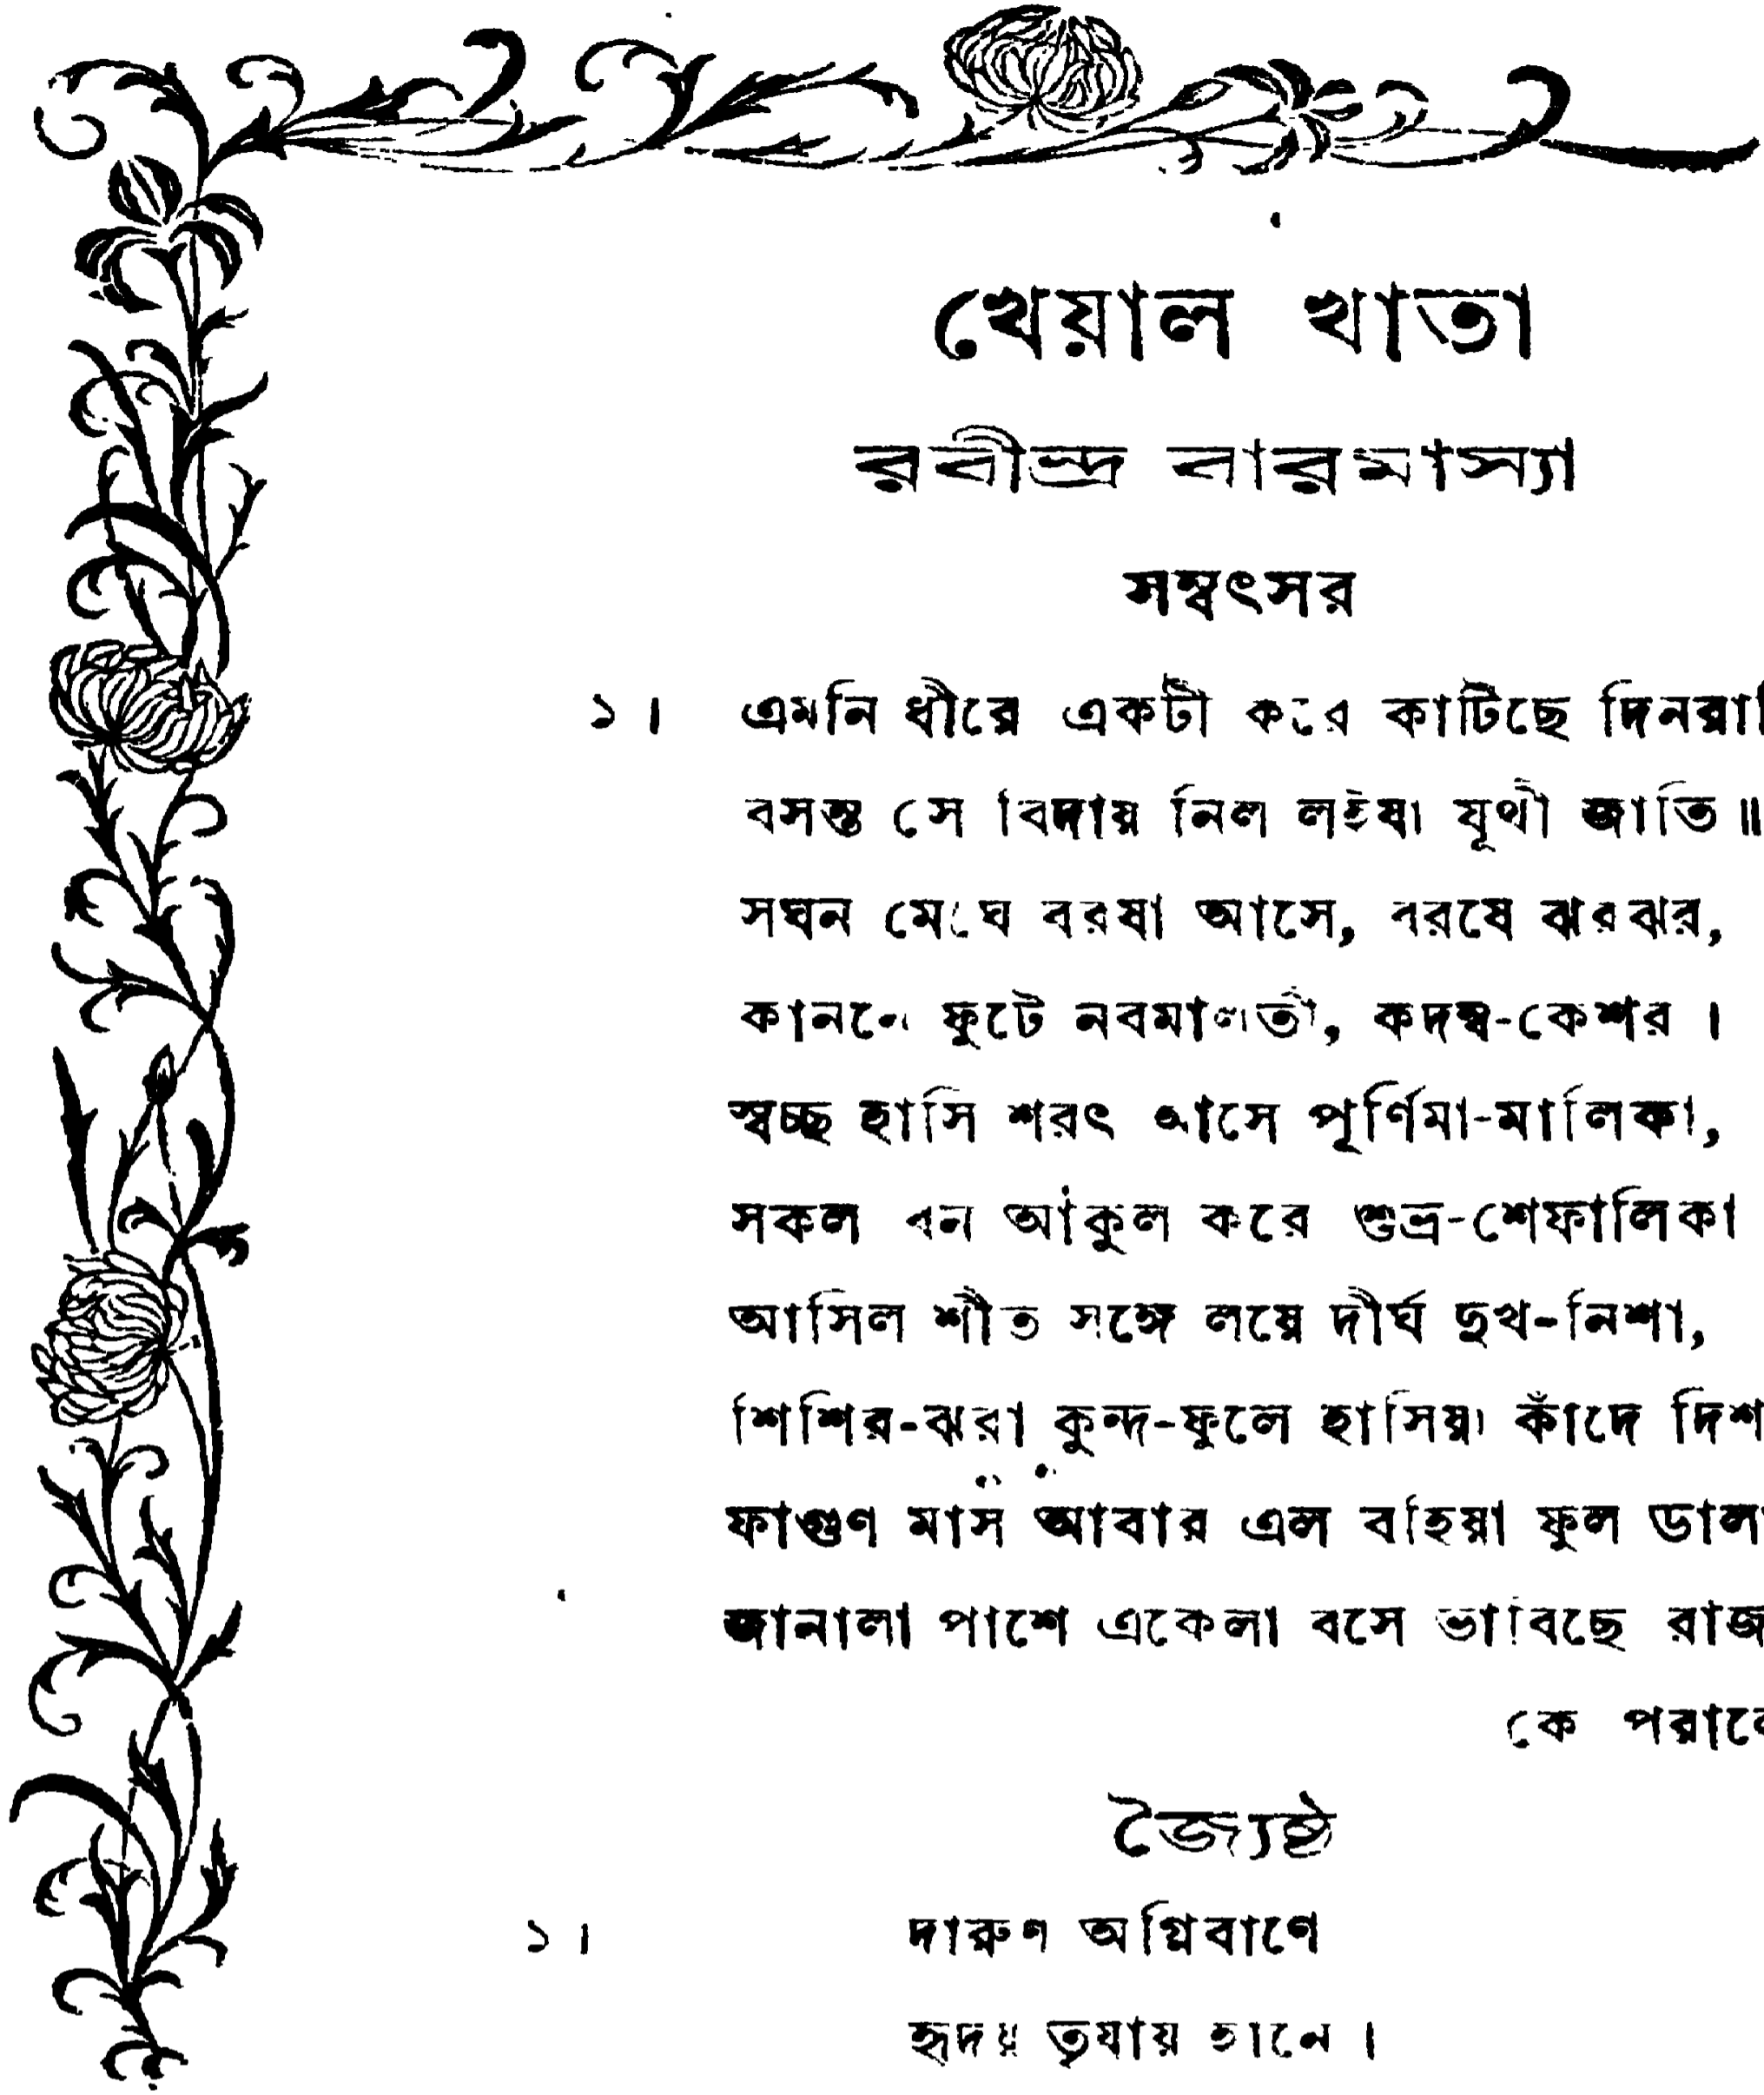 খেয়াল খাতা
রবীন্দ্র বারমাস্যা
সম্বৎসর
১। এমনি ধীরে একটী করে কাটিছে
বসন্ত সে বিদায় নিল লইয়া যূথী জাতি॥
সঘন মেঘে বরষা আসে, বরষে ঝরঝর,
কাননে ফুটে নবমালতী, কদম্ব-কেশর।
স্বচ্ছ হাসি শরৎ আসে পূর্ণিমা-মালিকা,
সকল বন আকুল করে শুভ্র-শেফালিকা
আসিল শীত সঙ্গে লয়ে দীর্ঘ দুখ-নিশা,
শিশির-ঝরা কুন্দ-ফুলে হাসিয়া কাঁদে
ফাগুণ মাস আবার এল বহিয়া ফুল
জানালা পাশে একেলা বসে ভাবিছে
কে
জ্যৈষ্ঠ
১। দারুণ অগ্নিবাণে
হৃদয় তৃষায় হানে।